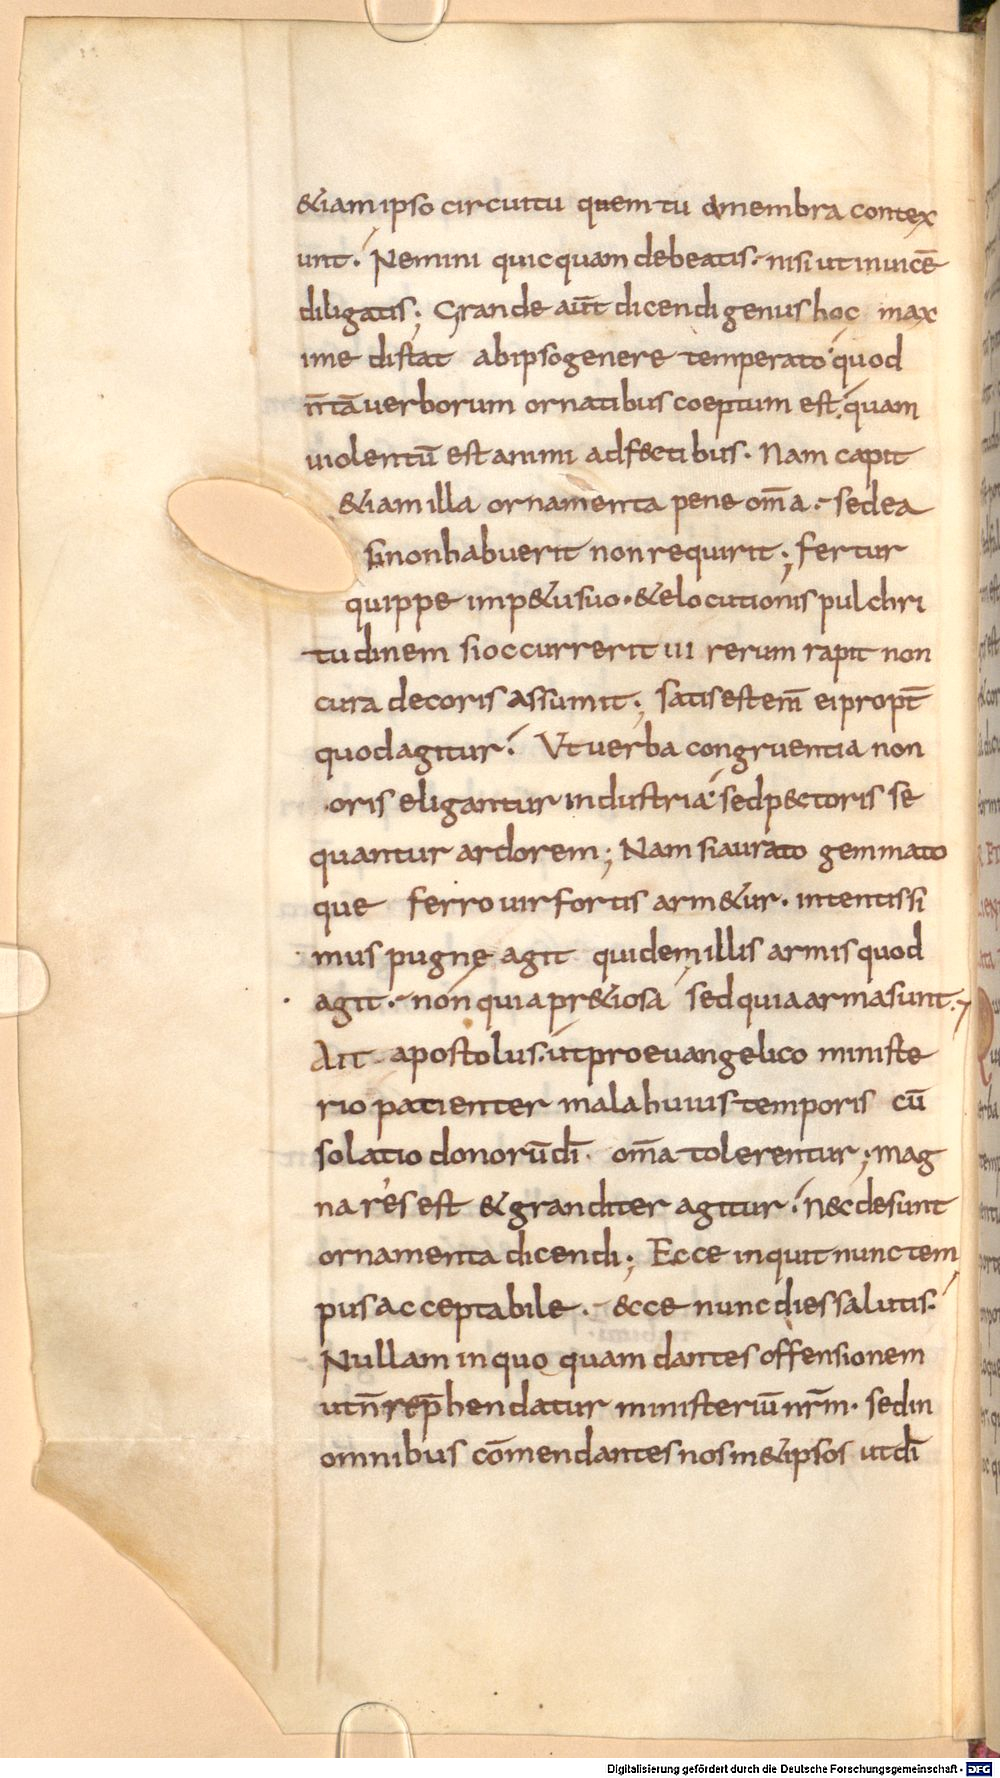 &iam ipso circuitu quem tu o membra contex
unt. Nemini quicquam debeatis. nisi ut inuicē
diligatis; Grande aut̄ dicendi genus hoc max
ime distat ab ipso genere temperato quod
n̄ tā uerborum ornatibus coeptum est. quam
uiolentū est animi adfectibus. Nam capit
&iam illa ornamenta pene om̄a. sed ea
si non habuerit non requirit; fertur
quippe imp&u suo. & elocutionis pulchri
tudinem si occurrerit ui rerum rapit non
cura decoris assumit; satis est em̄ ei propt̄
quod agitur. Ut uerba congruentia non
oris eligantur industria. sed pectoris se
quantur ardorem; Nam si aurato gemmato
que ferro uir fortis arm&ur. intentissi
mus pugnę agit quidem illis armis quod
agit. non quia pr&iosa sed quia arma sunt.
Ait apostolus. ut pro euangelico ministe
rio patienter mala huius temporis cū
solatio donorū dī. om̄a tolerentur; mag
na res est & granditer agitur. n&c desunt
ornamenta dicendi; Ecce inquit nunc tem
pus acceptabile. &cce nunc dies salutis.
Nullam in quo quam dantes offensionem
ut n̄ rep̄hendatur ministeriū nr̄m. sed in
omnibus cōmendantes nosm&ipsos ut dī
Digitalisierung gefördert durch die Deutsche Forschungsgemeinschaft - DFG